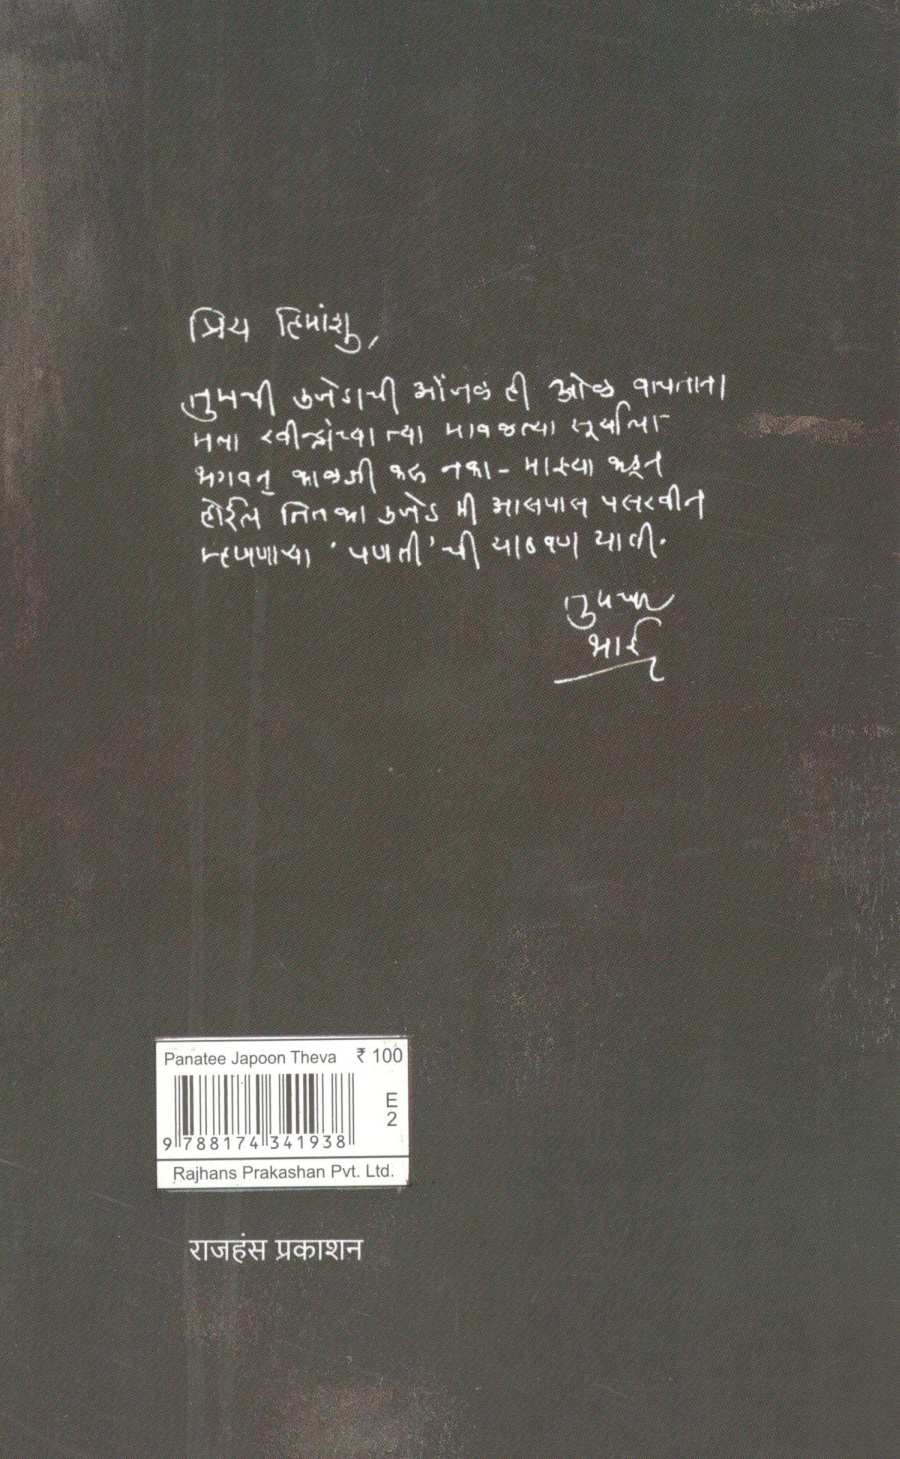 प्रिय हिमांशु,
तुमची उजेडाची ओंजळ ही ओळ वाचताना
मला रवीन्द्रांच्या त्या मावळत्या सूर्याला
भगवन् काळजी करू नका - माझ्या कडून
होईल तितका उजेड मी आसपास पसरवीन
म्हणणाऱ्या 'पणती' ची आठवण आली.
तुमचा
भाई
Panatee Japoon Theva ₹ 100
E
2
9 788174 341938
Rajhans Prakashan Pvt. Ltd.
राजहंस प्रकाशन